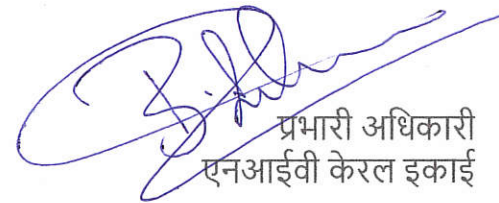 प्रभारी अधिकारी
एनआईवी केरल इकाई